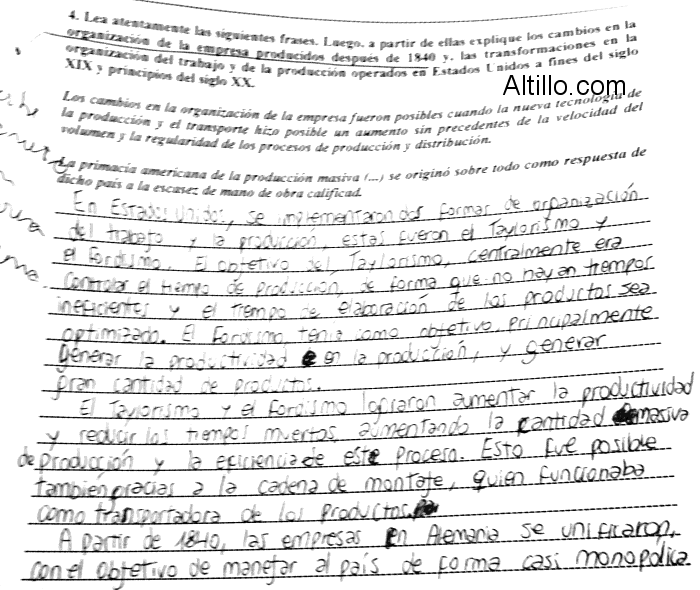 4. Lea atentamente las siguientes frases. Luego, a partir de ellas explique los cambios en la
organización de la empresa producidos después de 1840 y, las transformaciones en la
organización del trabajo y de la producción operados en Estados Unidos a fines del siglo
XIX y principios del siglo XX.
Altillo.com
Los cambios en la organización de la empresa fueron posibles cuando la nueva tecnología de
la producción y el transporte hizo posible un aumento sin precedentes de la velocidad del
volumen y la regularidad de los procesos de producción y distribución.
La primacía americana de la producción masiva (...) se originó sobre todo como respuesta de
dicho país a la escasez de mano de obra calificad.
En Estados Unidos, se implementaron dos formas de organización
del trabajo y la producción, estas fueron el Taylorismo y
el Fordismo. El objetivo del Taylorismo, centralmente era
controlar el tiempo de producción, de forma que no hayan tiempos
ineficientes y el tiempo de elaboración de los productos sea
optimizado. El Fordismo tenia como objetivo, principalmente
generar la productividad en la producción, y generar
gran cantidad de productos.
El Taylorismo y el Fordismo lograron aumentar la productividad
y reducir los tiempos muertos, aumentando la cantidad masiva
de producción y la eficiencia de este proceso. Esto fue posible
también gracias a la cadena de montaje, quien funcionaba
como transportadora de los productos.
A partir de 1840, las empresas en Alemania se unificaron,
con el objetivo de manejar al país de forma casi monopolica.